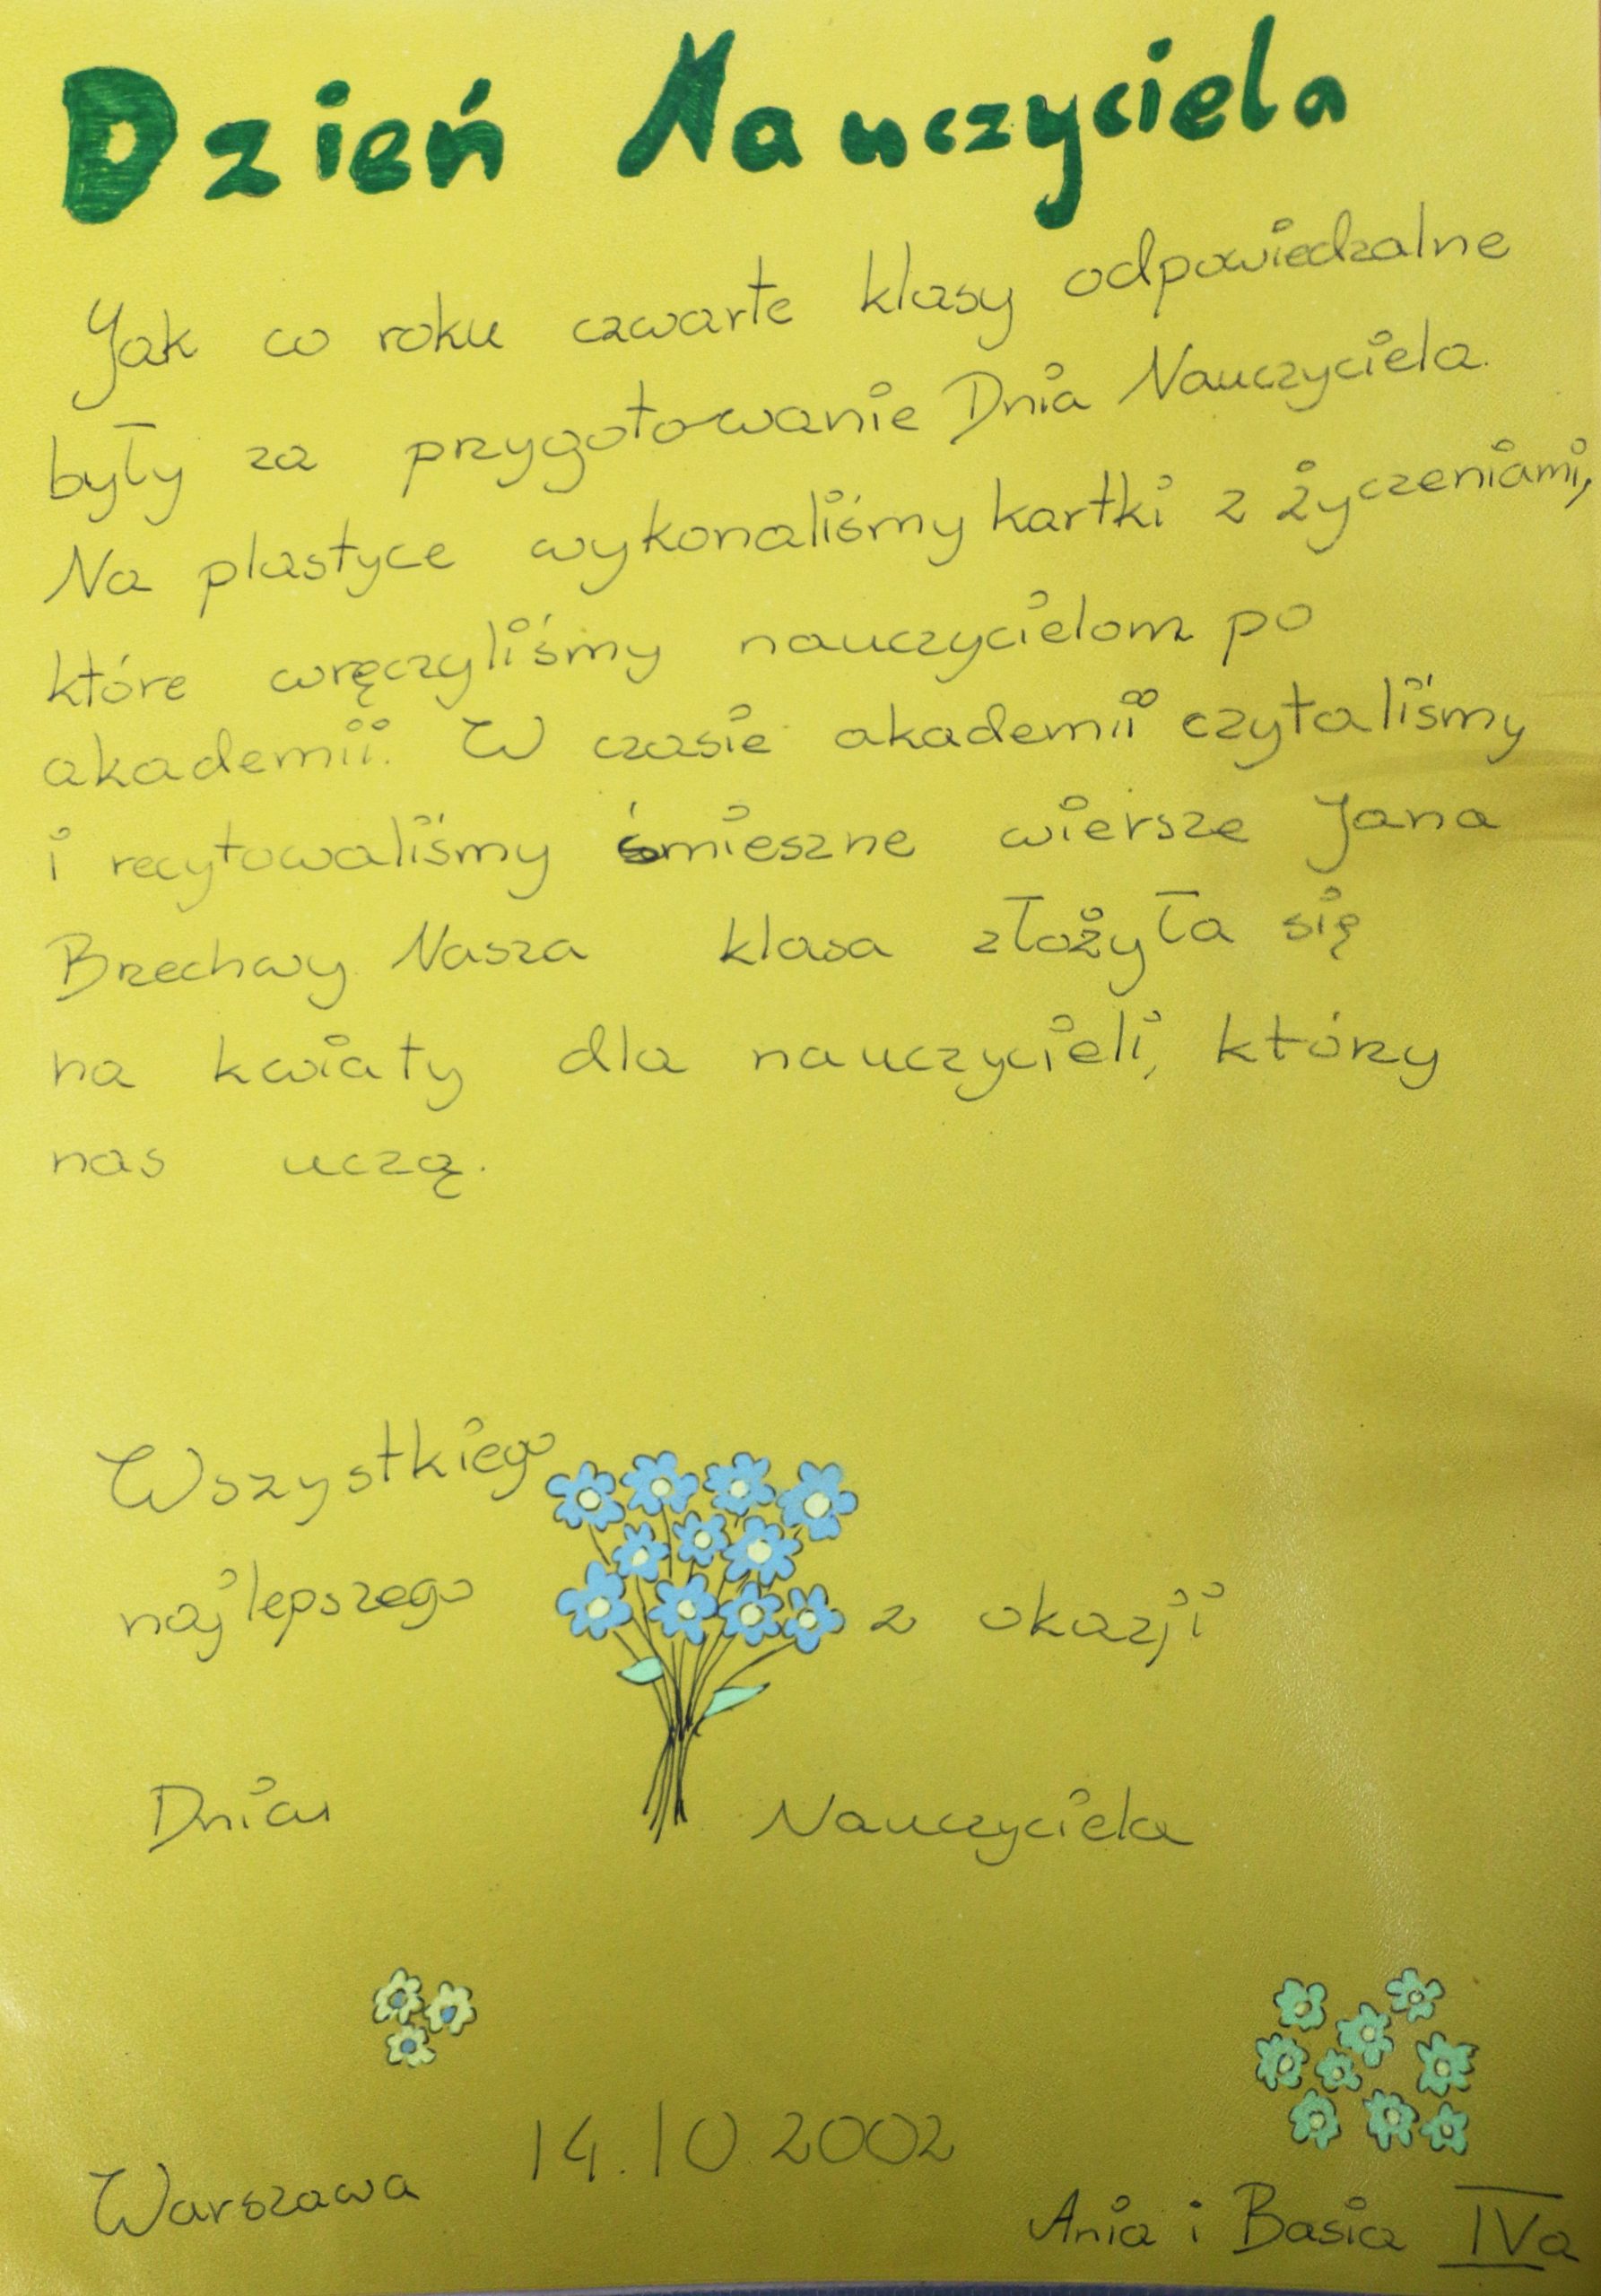 Dzień Nauczyciela
Jak co roku czwarte klasy odpowiedzalne
były za przygotowanie Dnia Nauczyciela.
Na plastyce wykonaliśmy kartki z życzeniami,
które wręczyliśmy nauczycielom po
akademii. W czasie akademii czytaliśmy
i recytowaliśmy śmieszne wiersze Jana
Brzechwy Nasza klasa złożyła się
na kwiaty dla nauczycieli, którzy
nas uczą.
Wszystkiego
najlepszego z okazji
Dnia Nauczyciela
14.10.2002
Warszawa
Ania i Basia IVa